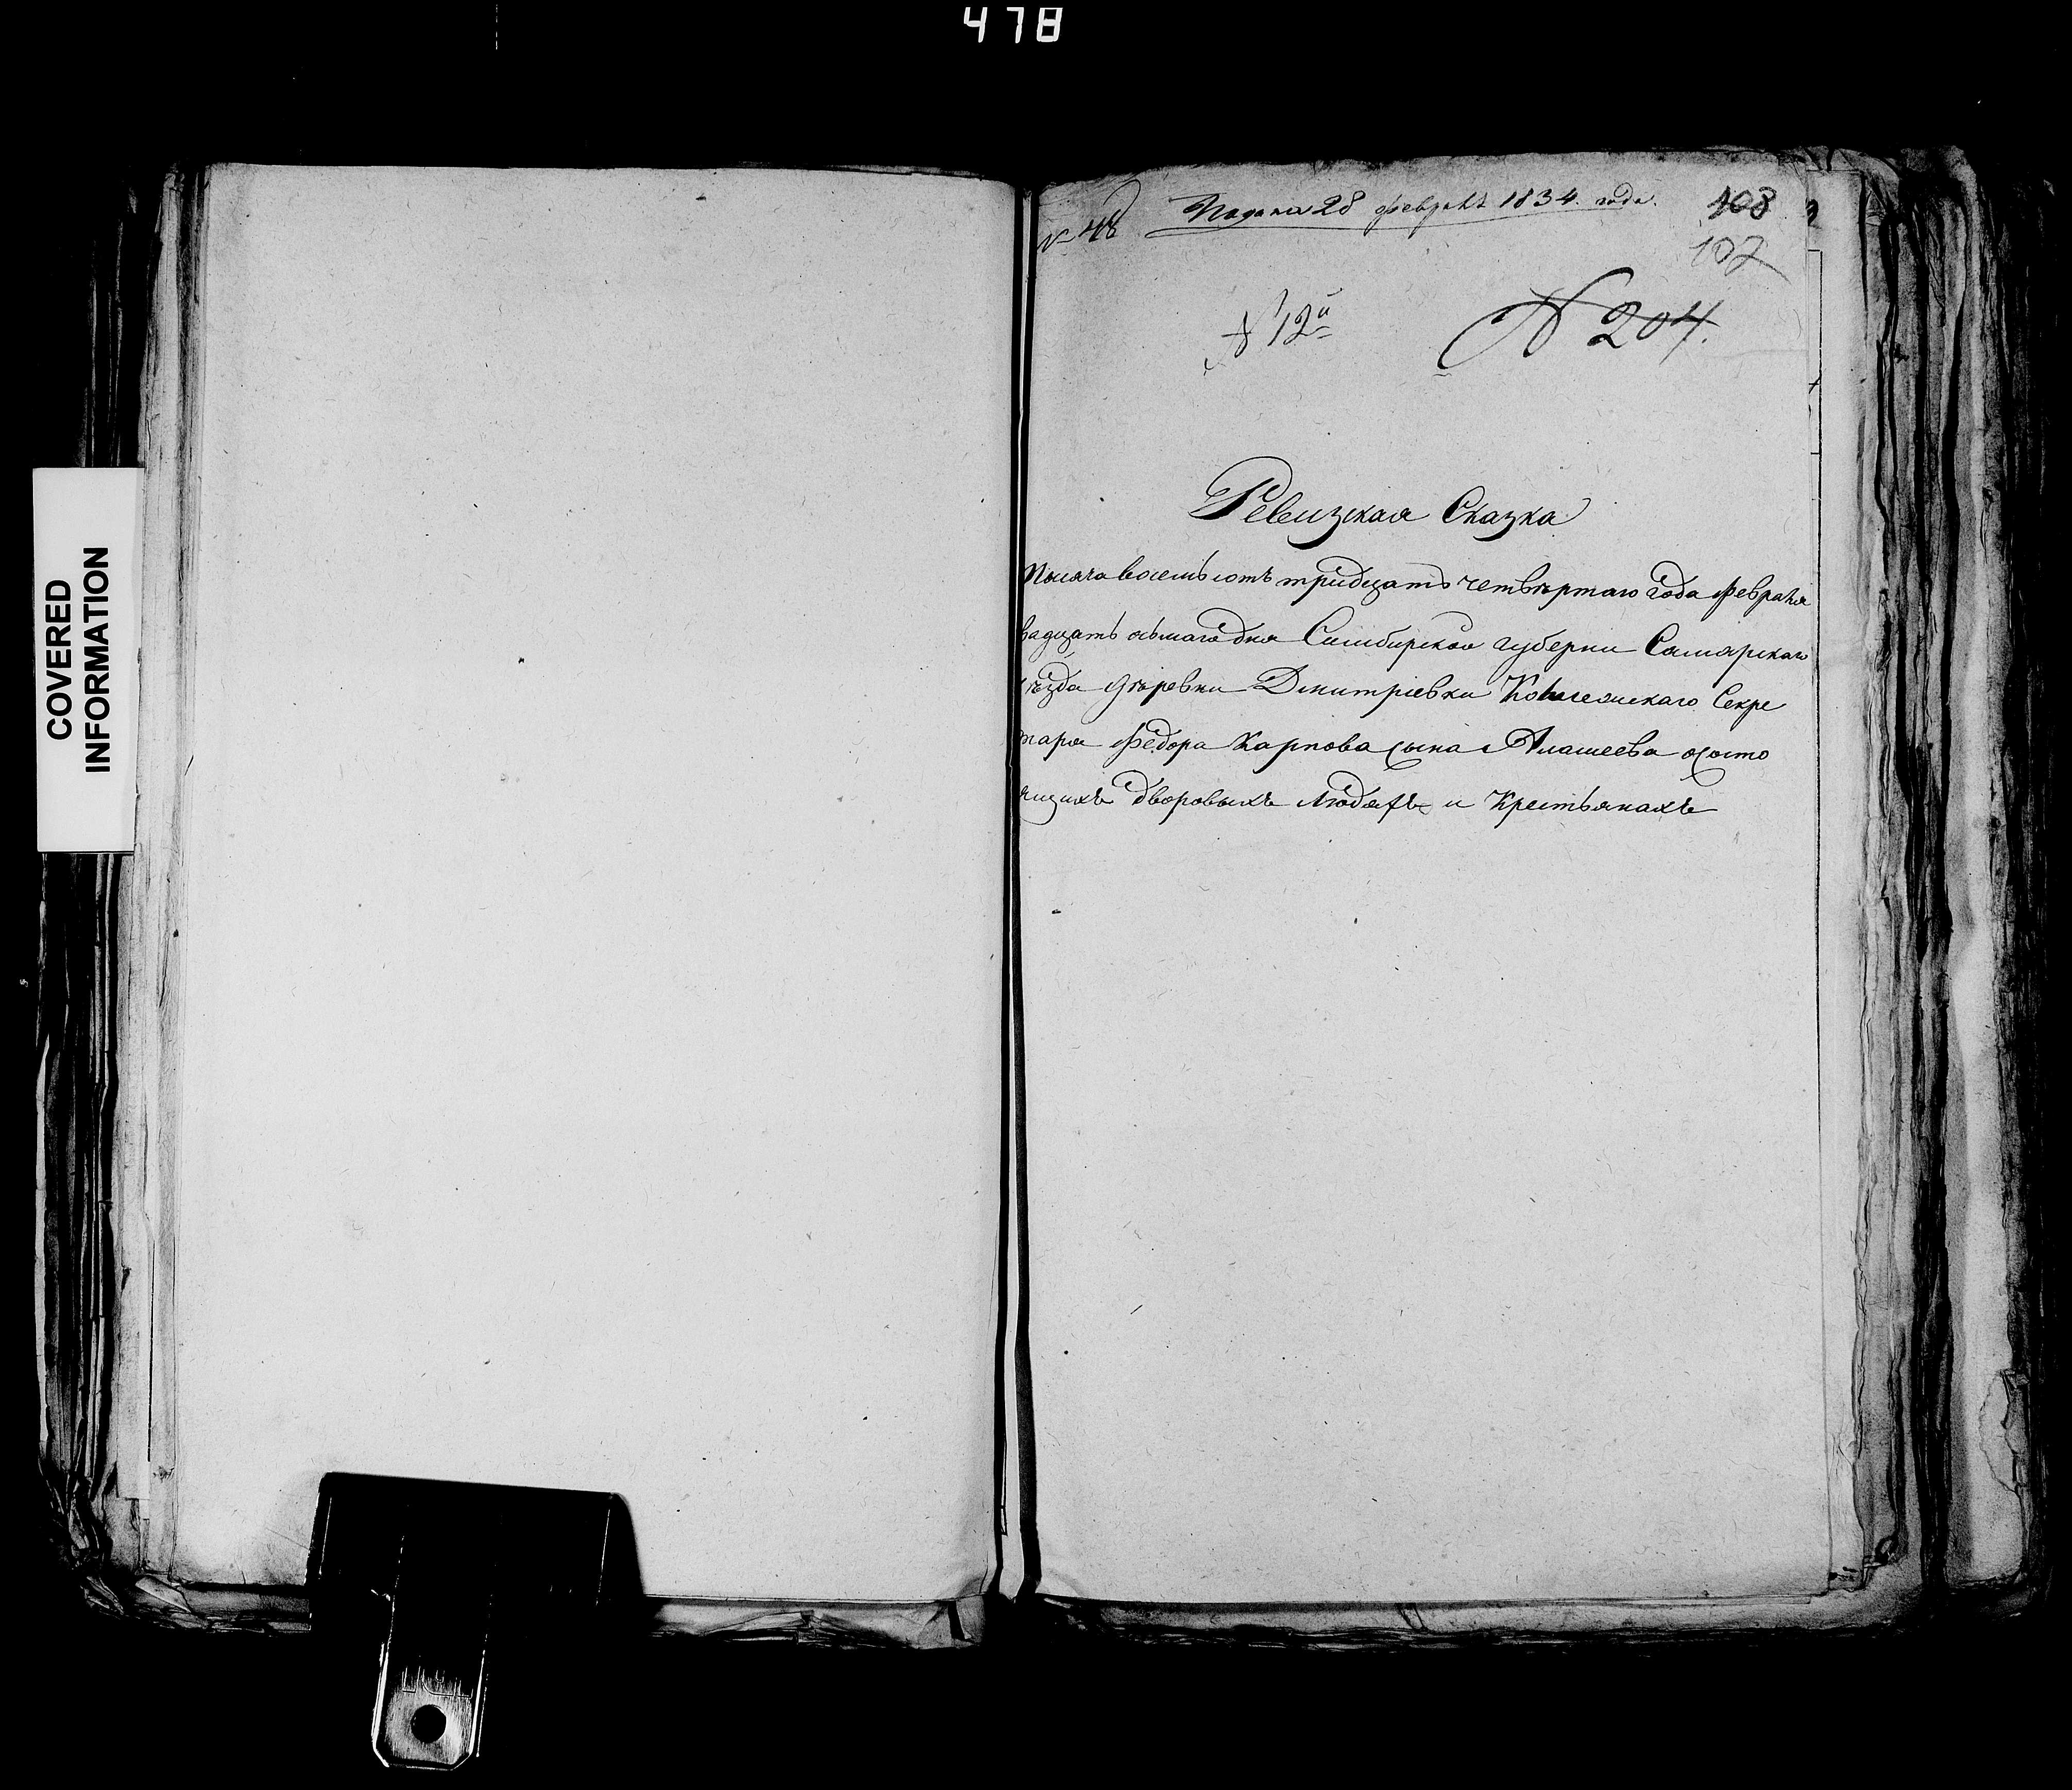 478
COVERED
INFORMATION
№ 48 Подана 28 февраля 1834. года. 108
107
№ 12й № 204.
Ревизская Сказка
тысяча восемьсотъ тридцать четвертаго года февраля
вадцать осьмаго дня Симбирской губернии Самарскаго
уѣзда деревни Дмитріевки Коллежскаго Секре
таря Федора Карпова сына Алашеева осто
ящихъ дворовыхъ людяхъ и крестьянахъ